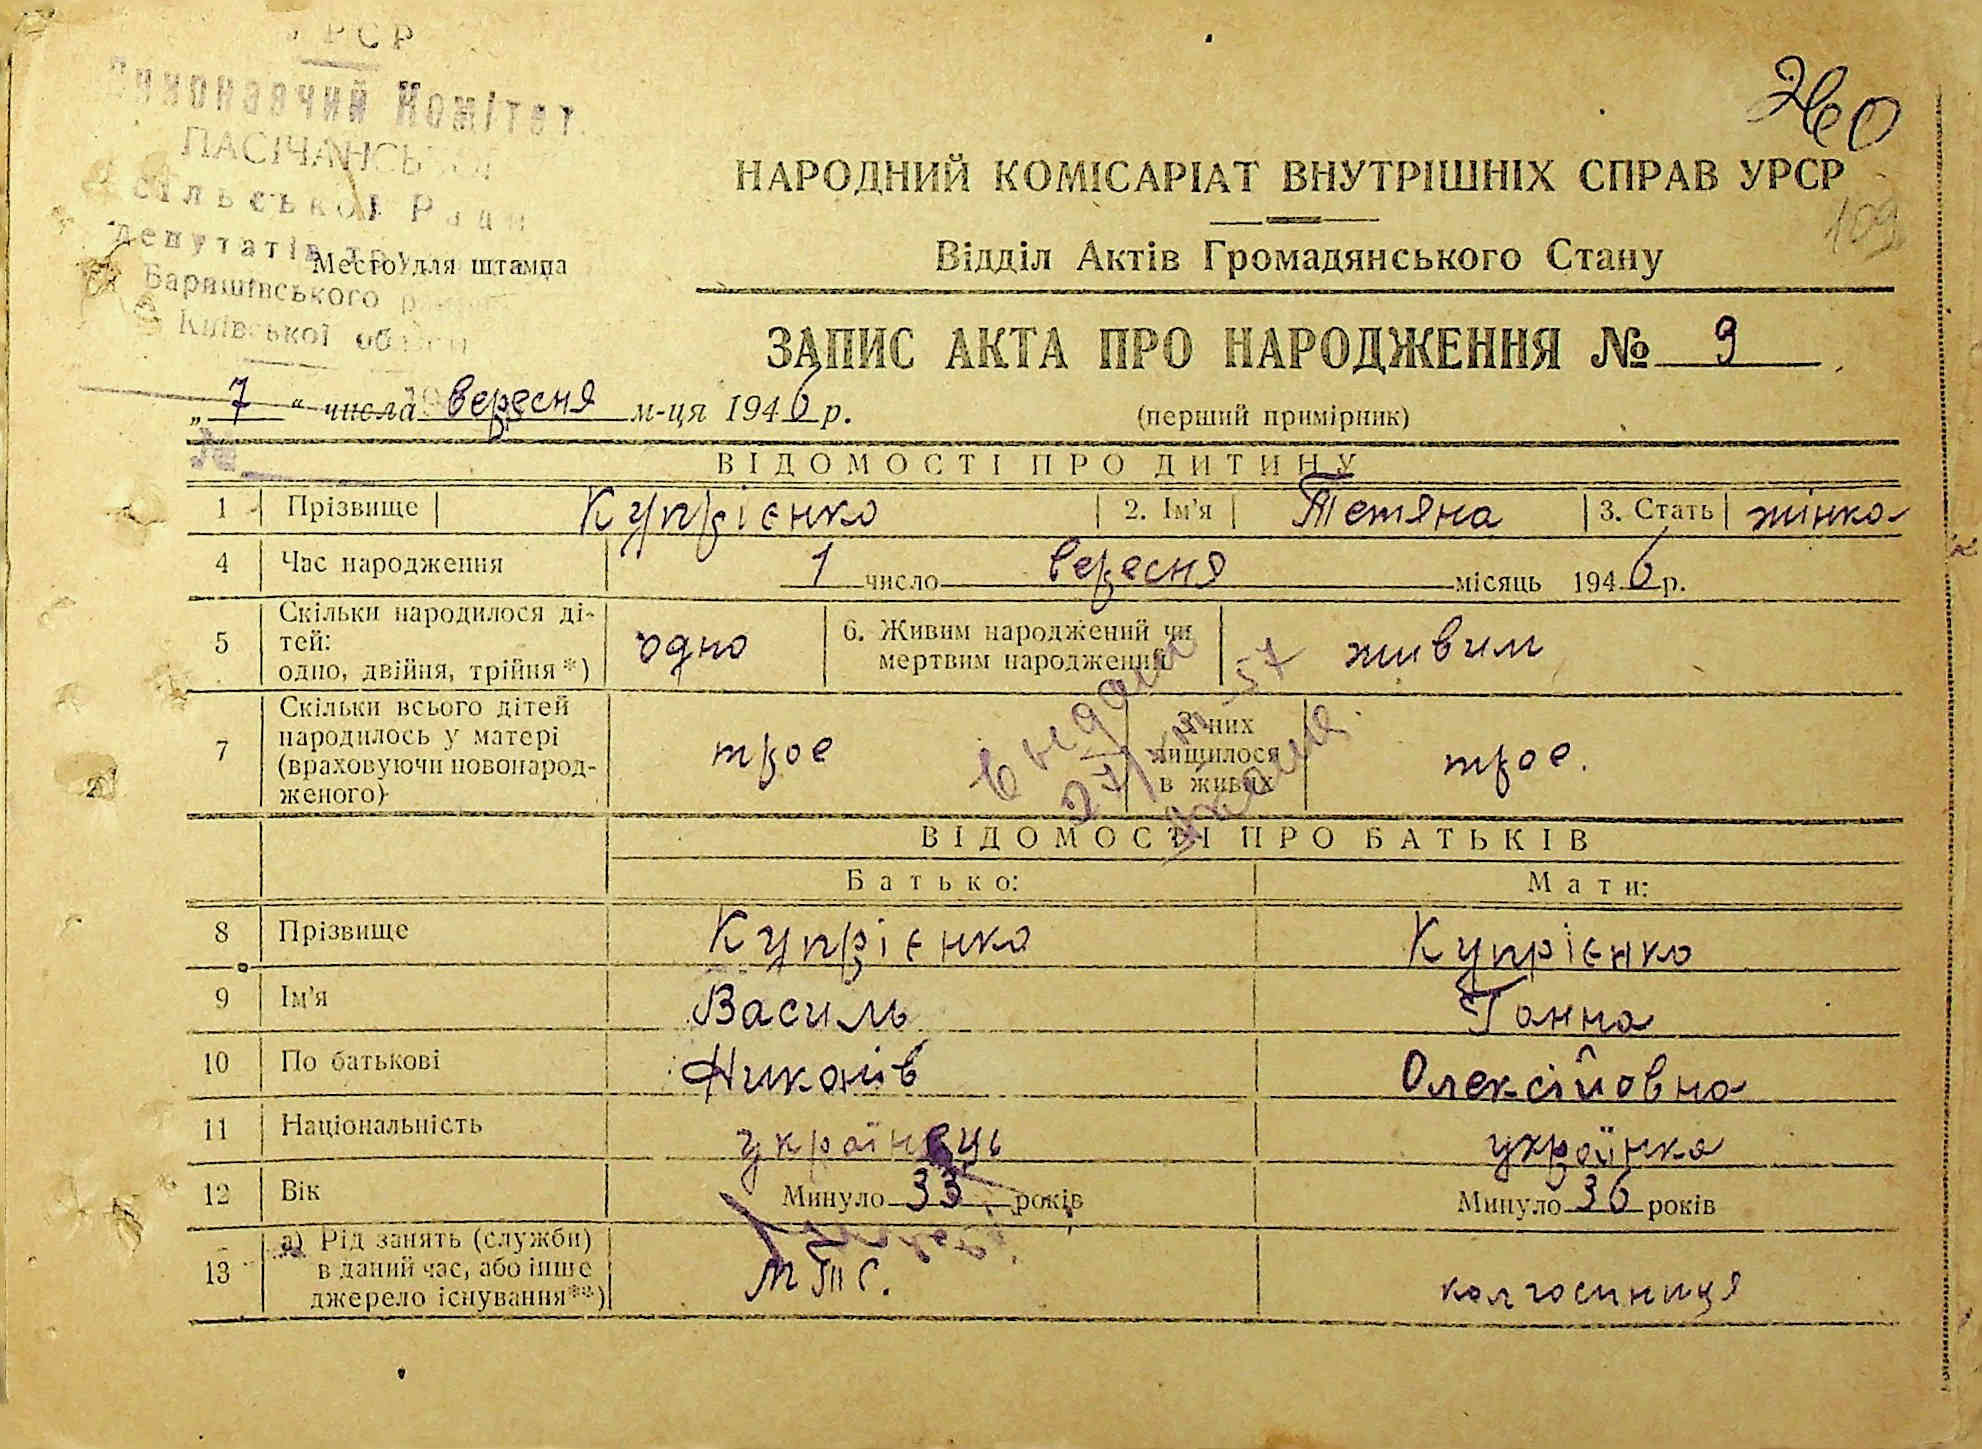 УРСР
Виконавчий Комітет
ПАСІЧАНСЬКОЇ
Сільської Ради
депутатів
Место для штампа
Баришівського
Київської області
260
109
НАРОДНИЙ КОМІСАРІАТ ВНУТРІШНІХ СПРАВ УРСР
Відділ Актів Громадянського Стану
ЗАПИС АКТА ПРО НАРОДЖЕННЯ № 9
„7“ числа вересня м-ця 1946 р.
(перший примірник)
№
ВІДОМОСТІ ПРО ДИТИНУ
1 Прізвище Купрієнко 2. Ім'я Тетяна 3. Стать жінка
4 Час народження 1 число вересня місяць 1946 р.
5 Скільки народилося ді-
тей:
одно, двійня, трійня*) одно 6. Живим народжений чи
мертвим народжений живим
7 Скільки всього дітей
народилось у матері
(враховуючи новонарод-
женого) троє З них
лишилося
в живих троє.
ВІДОМОСТІ ПРО БАТЬКІВ
Батько: Мати:
8 Прізвище Купрієнко Купрієнко
9 Ім'я Василь Ганна
10 По батькові Никонів Олексійовна
11 Національність українець українка
12 Вік Минуло 33 років Минуло 36 років
13 а) Рід занять (служби)
в даний час, або інше
джерело існування**) МТС. колгоспниця